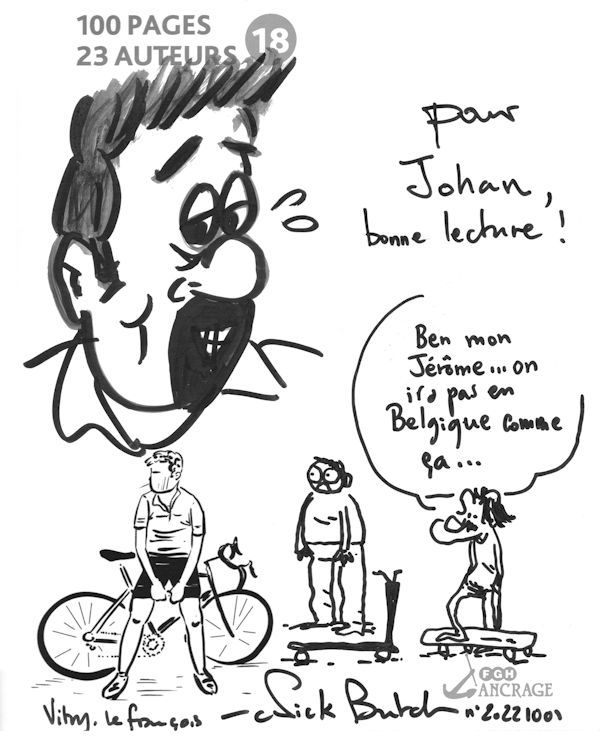 100 PAGES
23 AUTEURS 18
pour
Johan,
bonne lecture !
Ben mon
Jérôme... on
ira pas en
Belgique comme
ça...
FGH
ANCRAGE
Vitry. le françois - Sick Butch n°2.221001